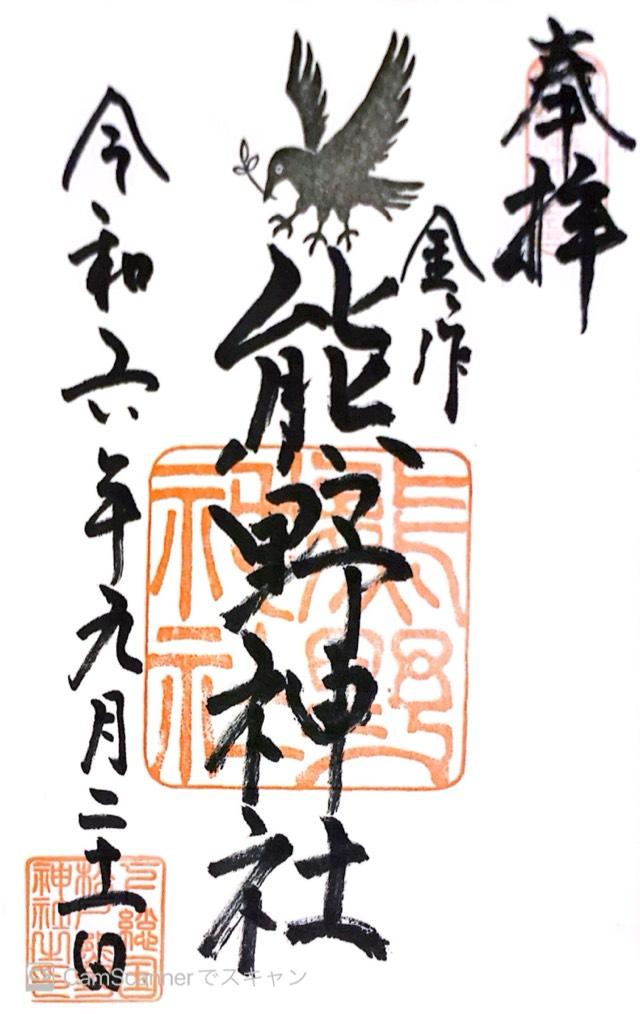 奉拝
金作
熊野神社
熊野
神社
令和六年九月二十一日
CamScannerでスキャン